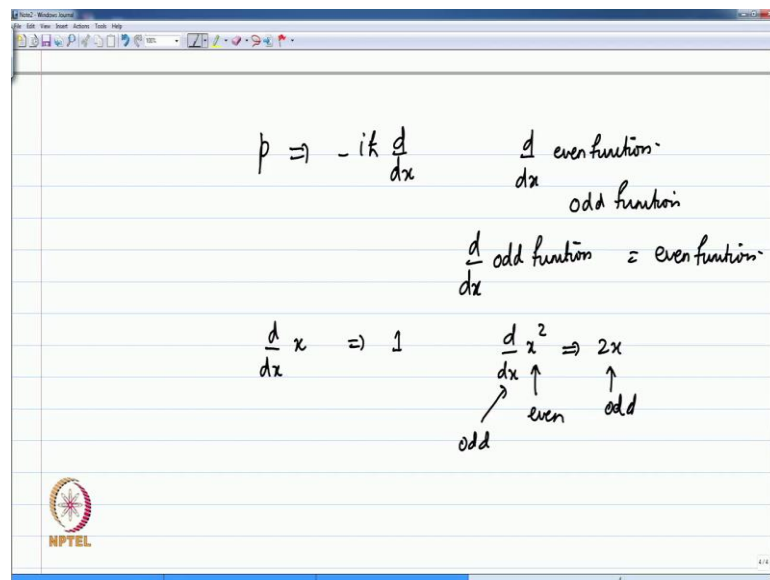 Note2 - Windows Journal
File Edit View Insert Actions Tools Help
p ⇒ -iħ d/dx
d/dx even function.
odd function
d/dx odd function = even function.
d/dx x ⇒ 1
d/dx x² ⇒ 2x
odd even odd
NPTEL
4/4